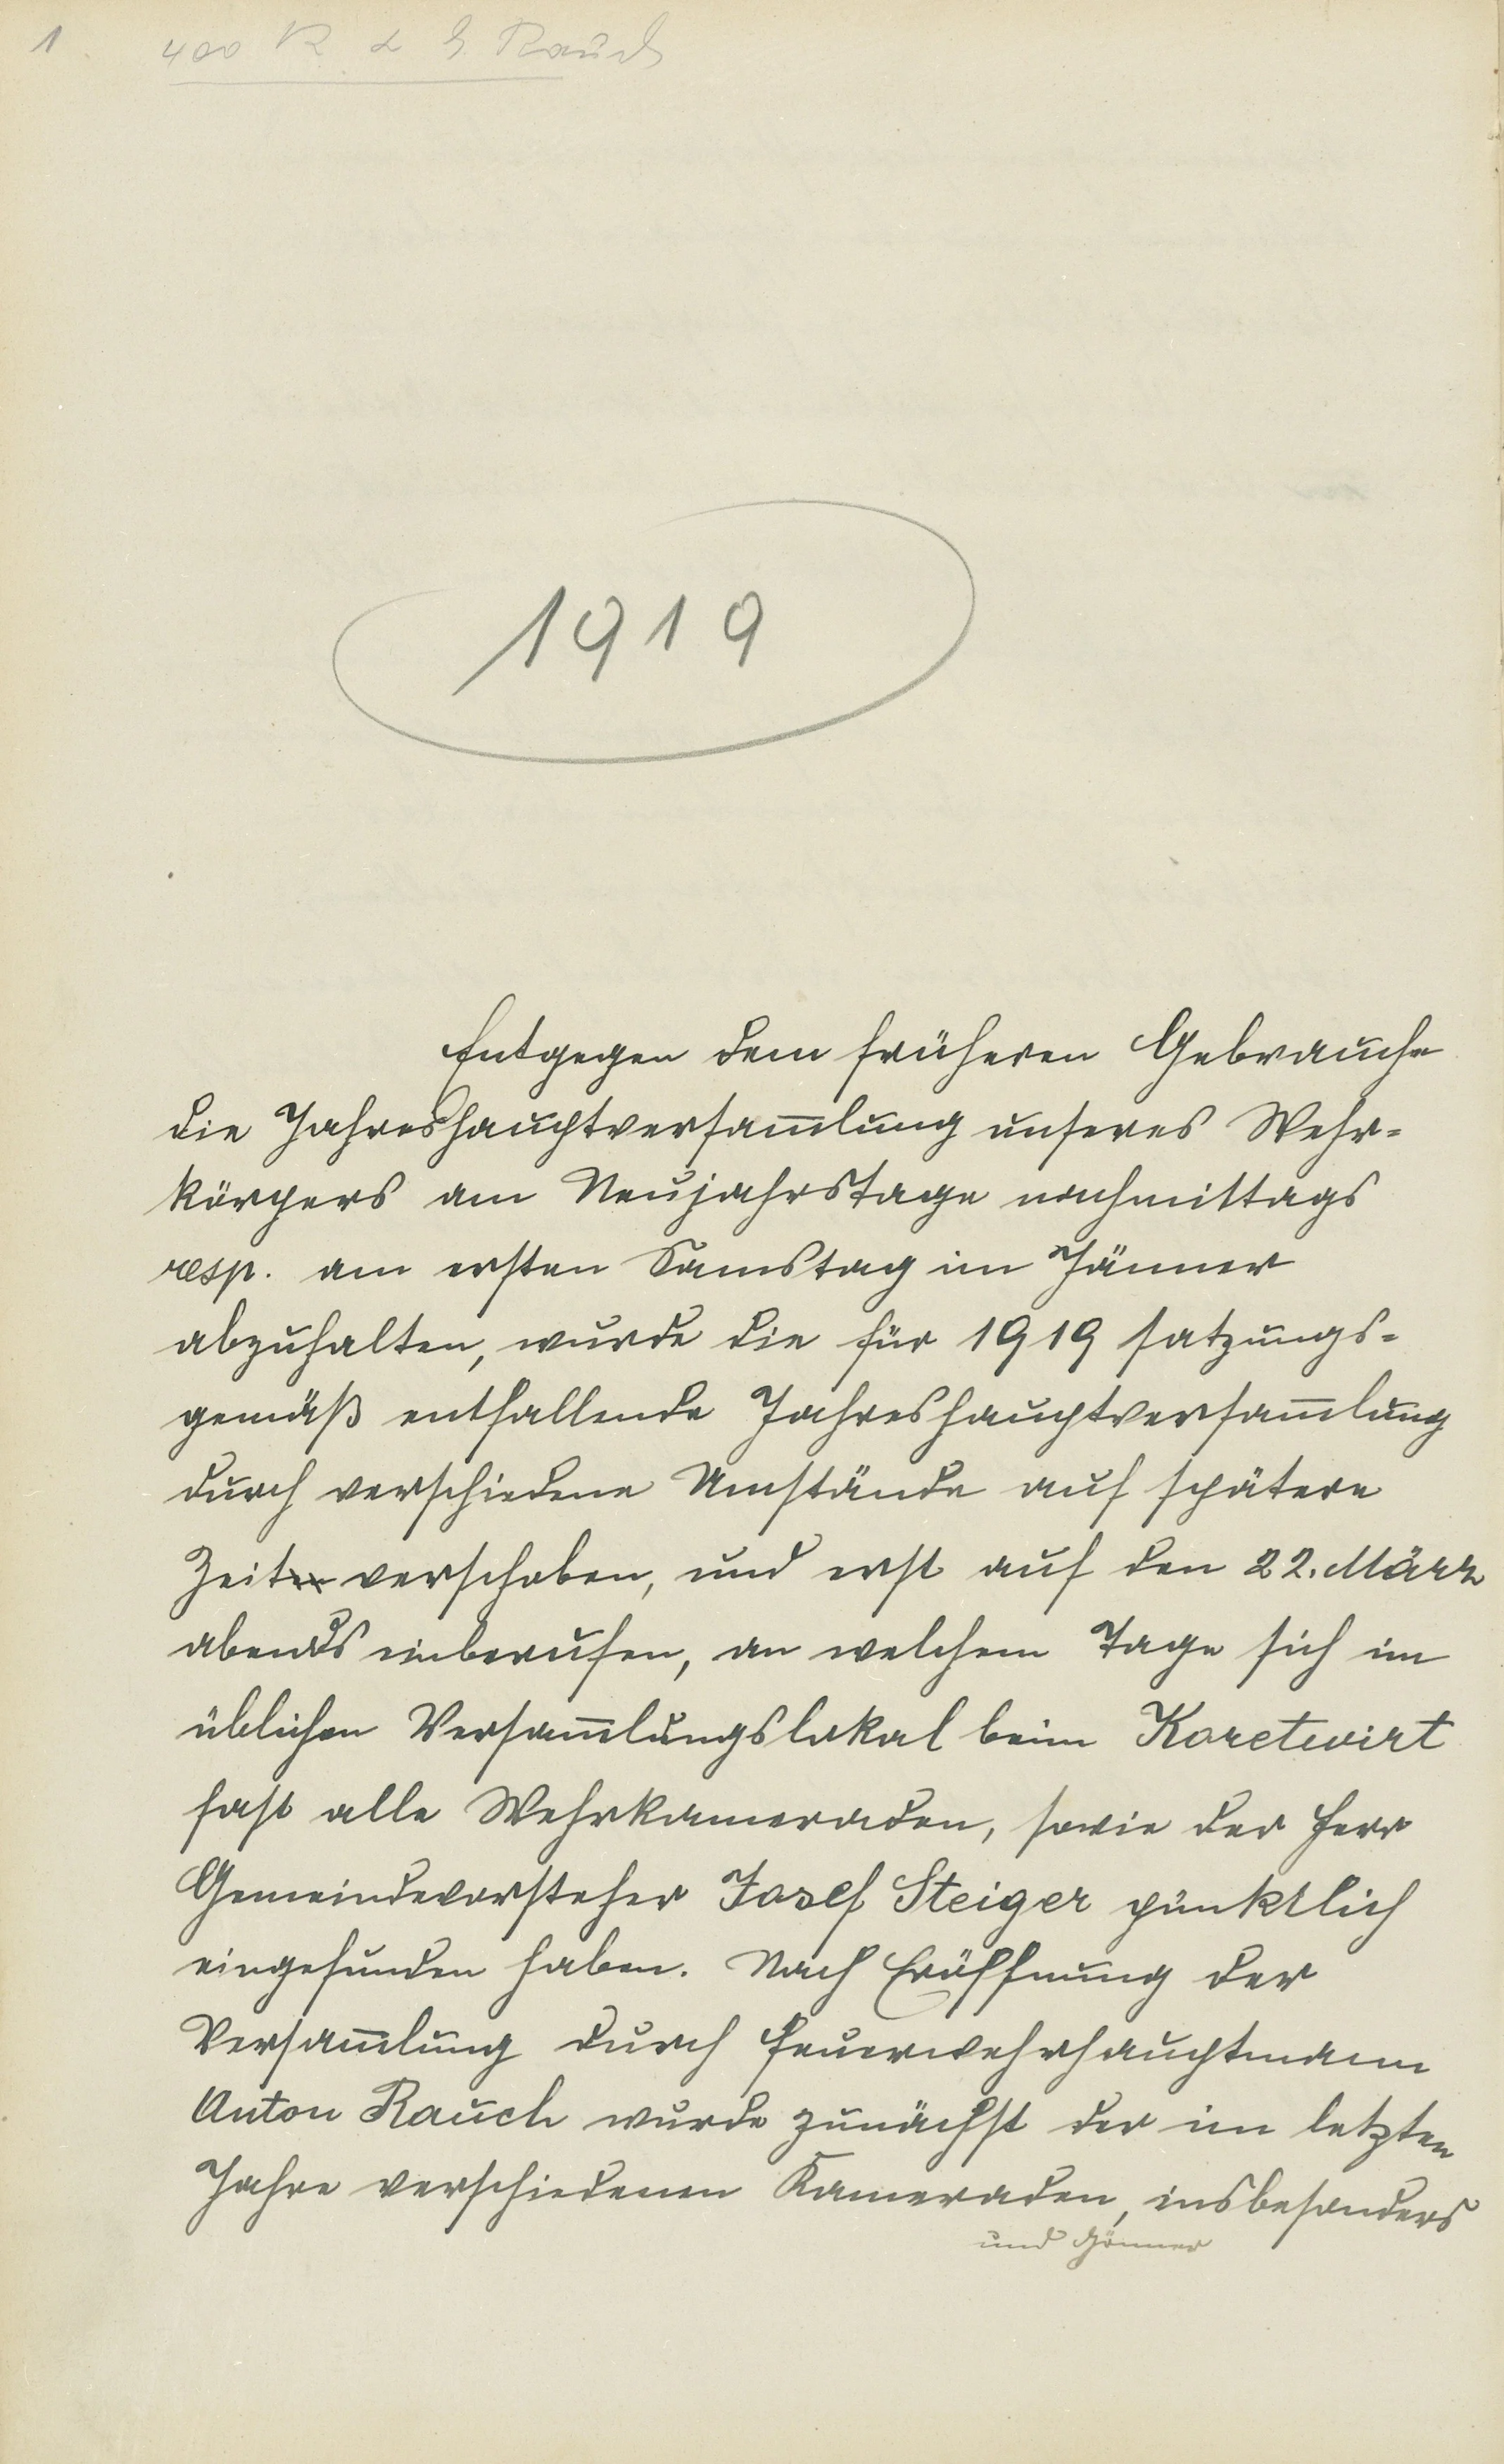 1
400 K d. H. Rauch
1919
Entgegen dem früheren Gebrauche
die Jahreshauptversam̅lung unseres Wehr=
körpers am Neujahrstage nachmittags
resp. am ersten Samstag im Jänner
abzuhalten, wurde die für 1919 satzungs=
gemäß entfallende Jahreshauptversam̅lung
durch verschiedene Umstände auf spätere
Zeit verschoben, und erst auf den 22. März
abends einberufen, an welchem Tage sich im
üblichen Versam̅lungslokal beim Koretwirt
fast alle Wehrkameraden, sowie der Herr
Gemeindevorsteher Josef Steiger pünktlich
eingefunden haben. Nach Eröffnung der
Versam̅lung durch Feuerwehrhauptmann
Anton Rauch wurde zunächst der im letzten
Jahre verschiedenen Kameraden, insbesonders
und Gönner